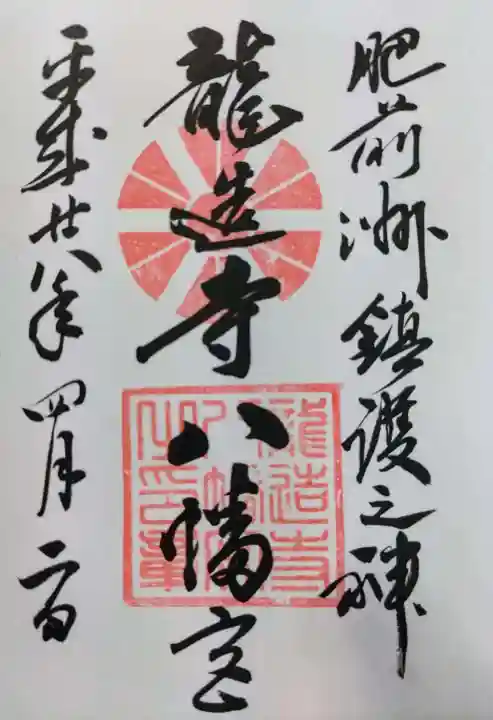 肥前洲鎮護之神
龍造寺八幡宮
平成廿八年四月二日
龍造寺
八幡宮
之印章